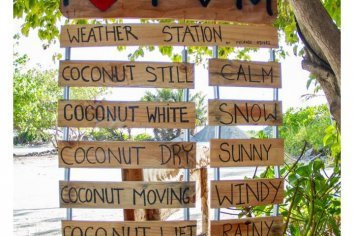 WEATHER STATION
COCONUT STILL CALM
COCONUT WHITE SNOW
COCONUT DRY SUNNY
COCONUT MOVING WINDY
COCONUT WET RAINY